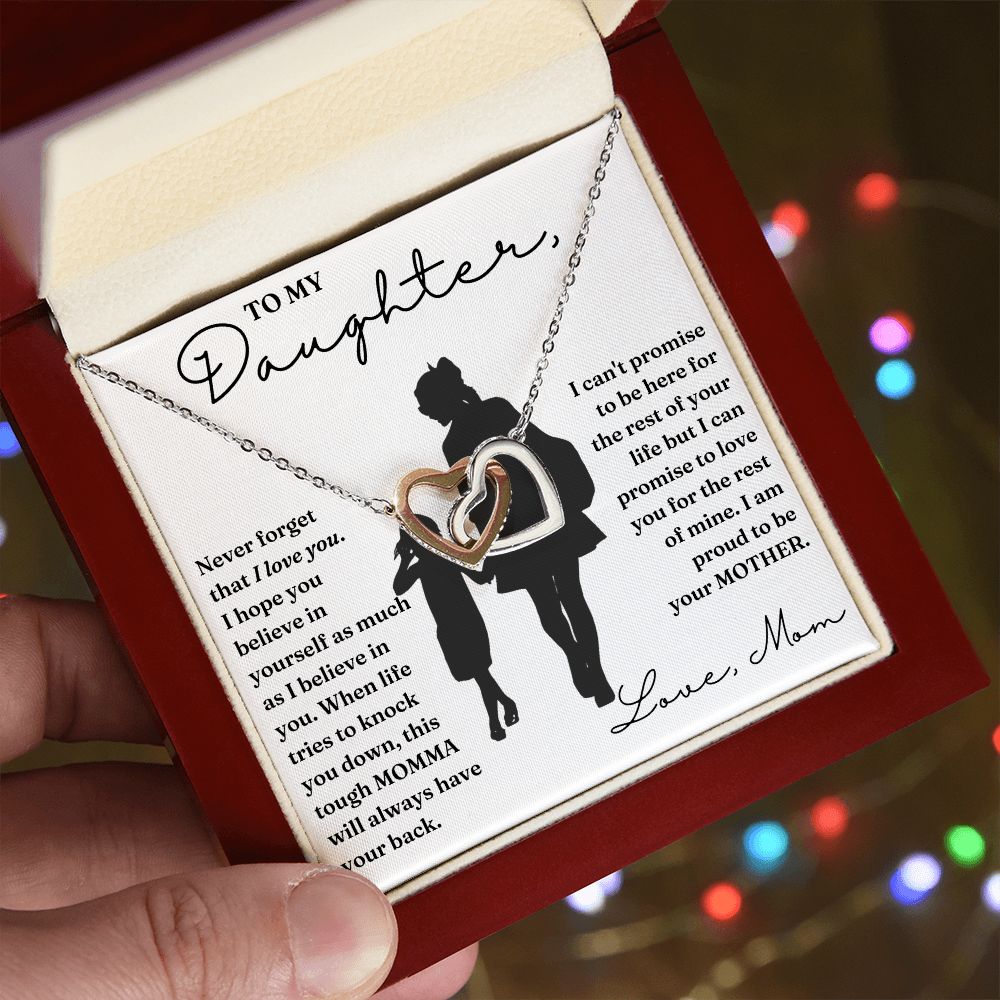 TO MY
Daughter,
Never forget
that I love you.
I hope you
believe in
yourself as much
as I believe in
you. When life
tries to knock
you down, this
tough MOMMA
will always have
your back.
I can't promise
to be here for
the rest of your
life but I can
promise to love
you for the rest
of mine. I am
proud to be
your MOTHER.
Love, Mom